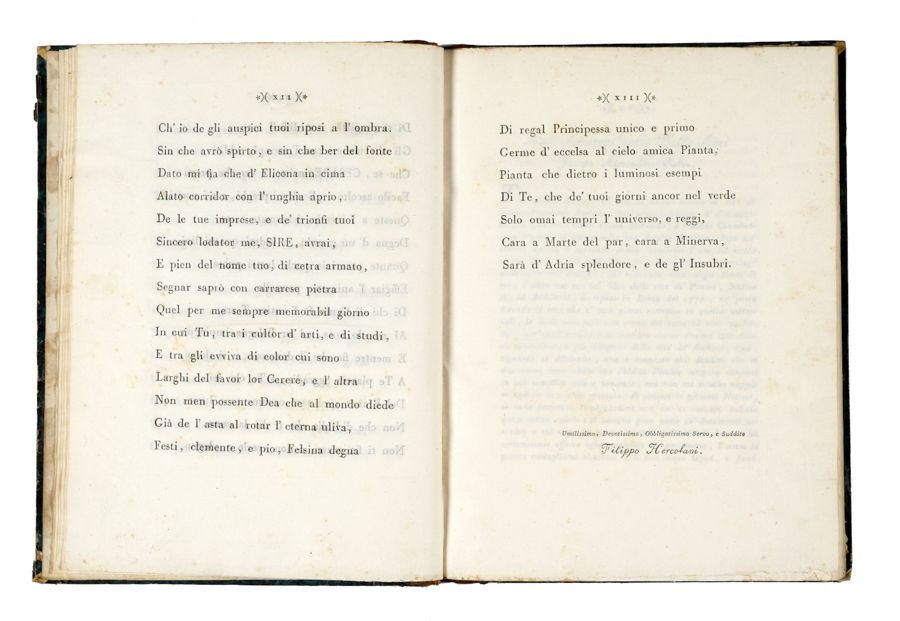 XII
Ch' io de gli auspicj tuoi riposi a l' ombra.
Sin che avrò spirto, e sin che ber del fonte
Dato mi fia che d' Elicona in cima
Alato corridor con l' unghia aprio,
De le tue imprese, e de' trionfi tuoi
Sincero lodator me, SIRE, avrai,
E pien del nome tuo, di cetra armato,
Segnar saprò con carrarese pietra
Quel per me sempre memorabil giorno
In cui Tu, tra i cultor d' arti, e di studi,
E tra gli evviva di color cui sono
Larghi del favor lor Cerere, e l' altra
Non men possente Dea che al mondo diede
Già de l' asta al rotar l' eterna uliva,
Festi, clemente, e pio, Felsina degna
XIII
Di regal Principessa unico e primo
Germe d' eccelsa al cielo amica Pianta;
Pianta che dietro i luminosi esempi
Di Te, che de' tuoi giorni ancor nel verde
Solo omai tempri l' universo, e reggi,
Cara a Marte del par, cara a Minerva,
Sarà d' Adria splendore, e de gl' Insubri.
Umilissimo, Devotissimo, Obbligatissimo Servo, e Suddito
Filippo Hercolani.